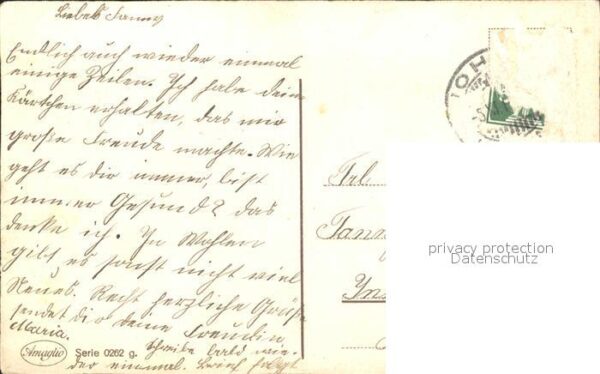 Liebes Fanny
Endlich auch wieder einmal
einige Zeilen. Ich habe dein
Kärtchen erhalten, das mir
große Freude machte. Wie
geht es dir immer, bist
immer Gesund? das
denke ich. In Wohlen
gibt es sonst nicht viel
Neues. Recht herzliche Grüße
sendet dir deine Freundin
Maria.
Schreibe bald wie-
der einmal. Brief folgt
Amaglio
Serie 0262 g.
OH
Frl.
Fanny
Ins
privacy protection
Datenschutz